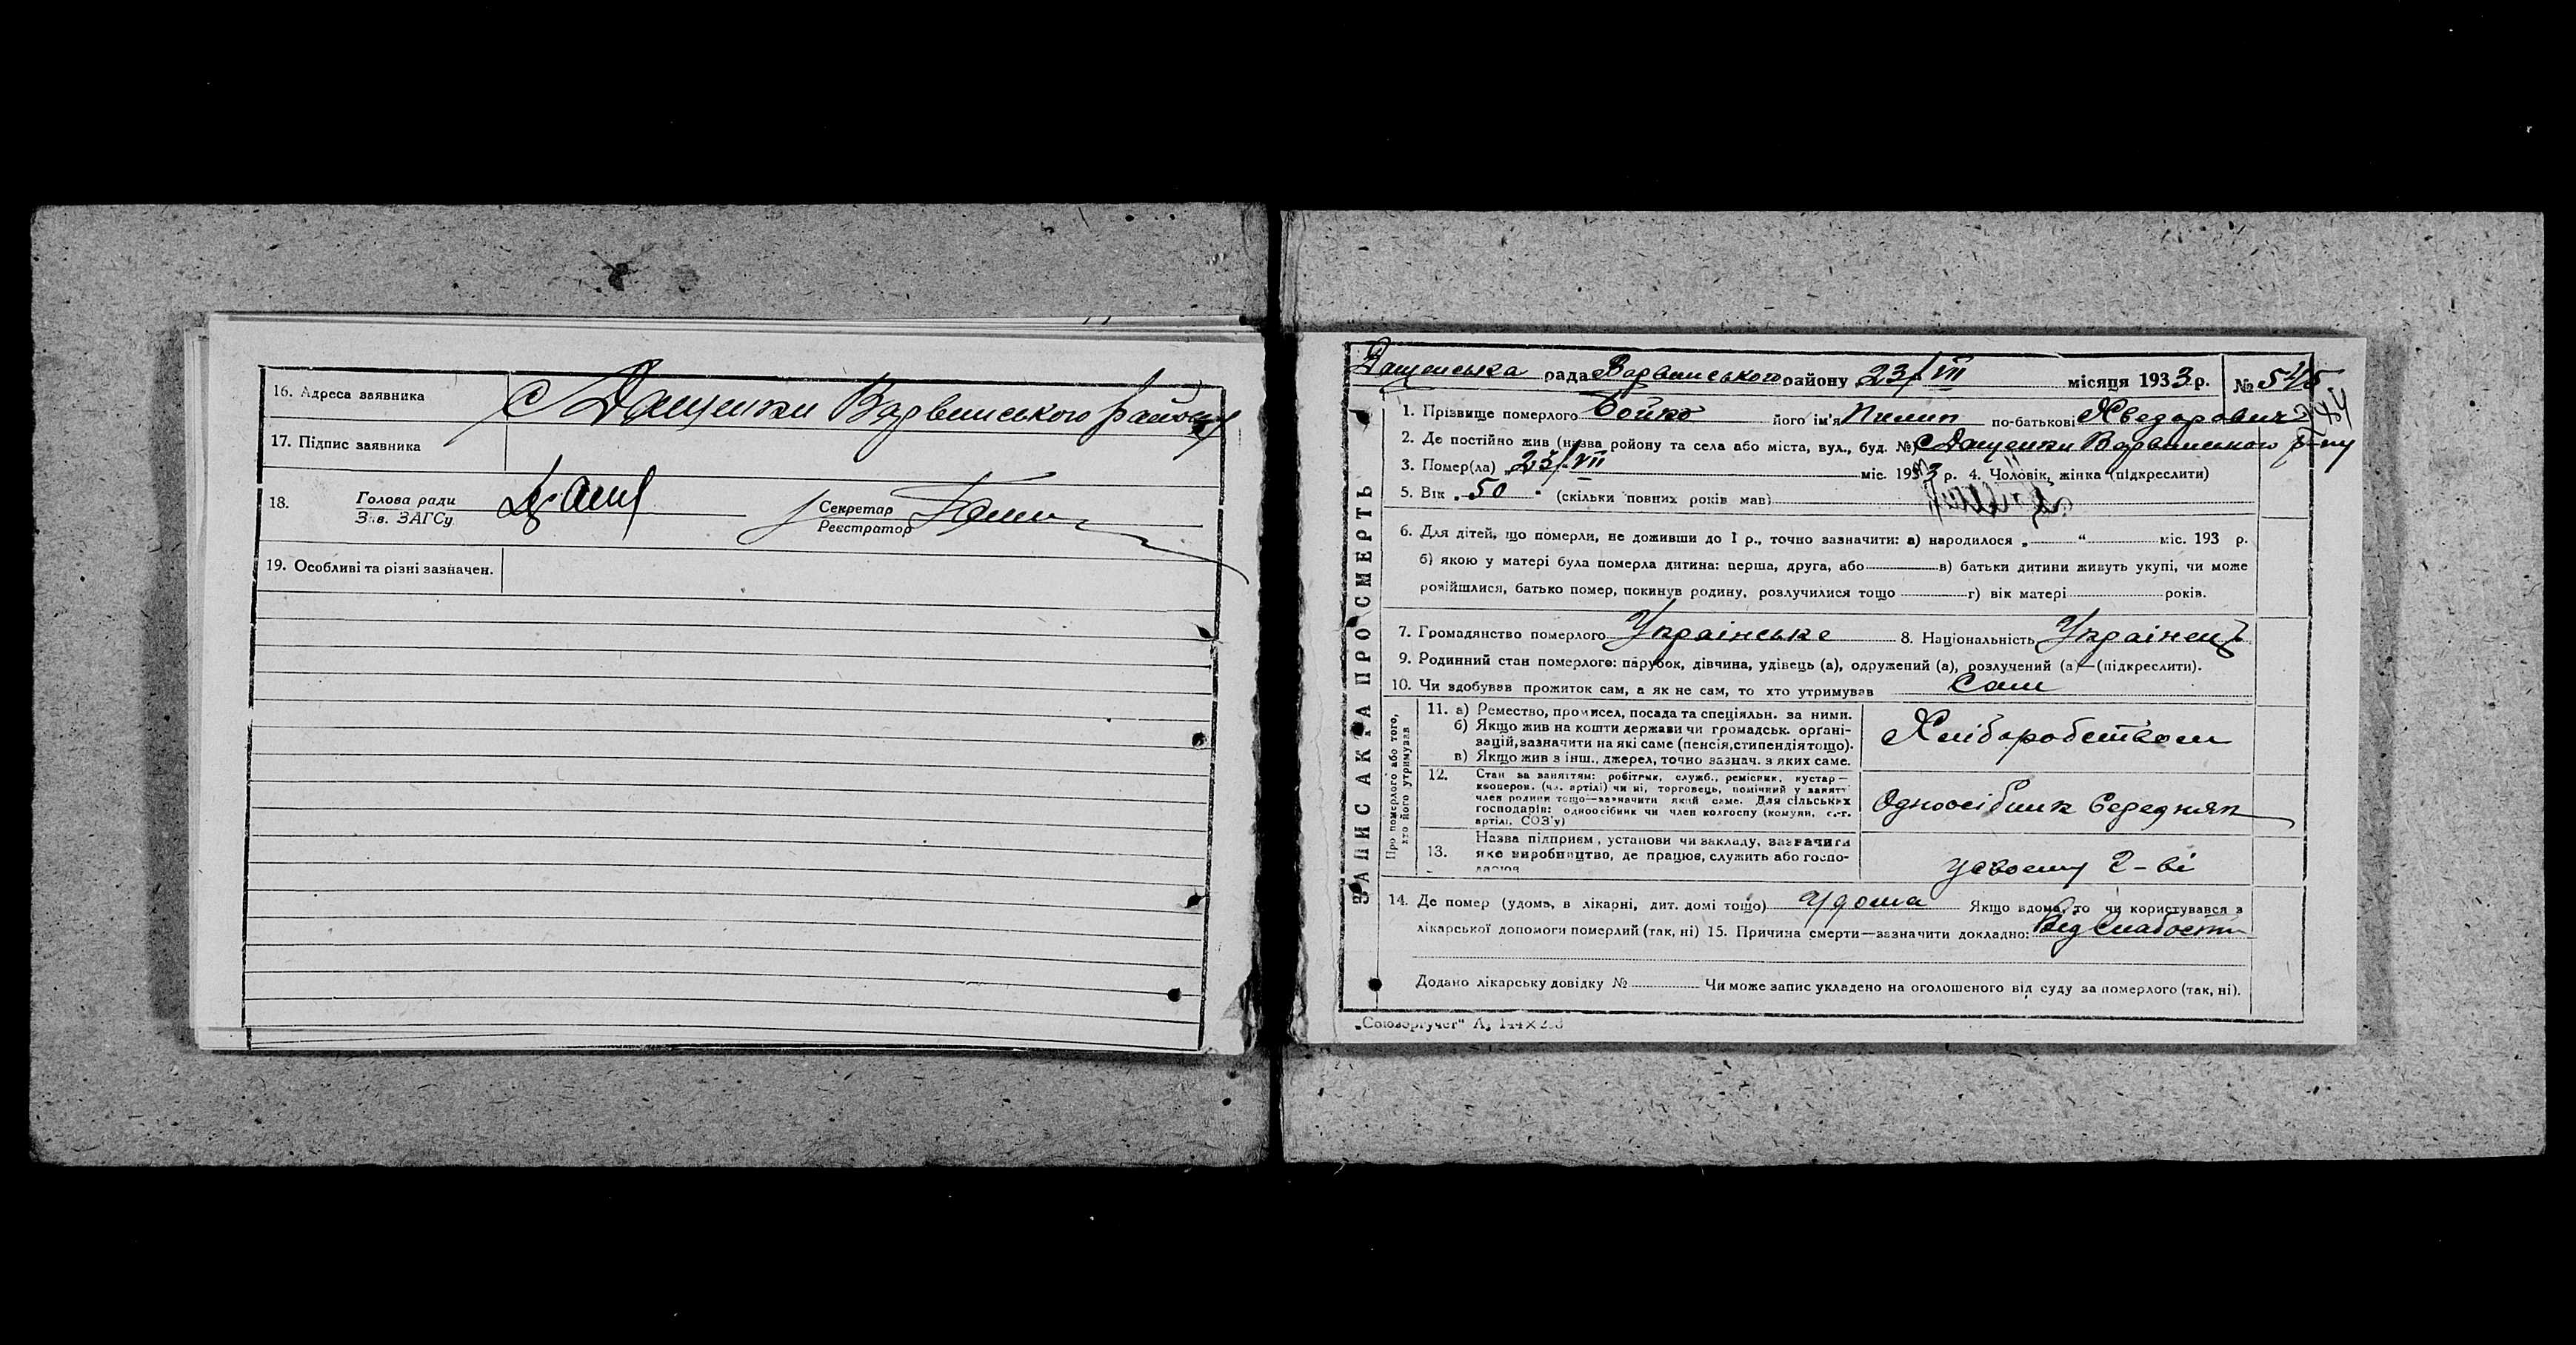 16. Адреса заявника с Дащенки Варвинського району
17. Підпис заявника
18. Голова ради
Зав. ЗАГСу
Секретар
Реєстратор
19. Особливі та різні зазначен.
ЗАПИС АКТА ПРО СМЕРТЬ
Дащенська рада Варвинського району 23/VII місяця 1933 р. № 545
1. Прізвище померлого Бойко його ім'я Пилип по-батькові Хведорович
2. Де постійно жив (назва ройону та села або міста, вул., буд. №) с Дащенки Варвинського р-ну
3. Помер(ла) „23/VII міс. 1933 р. 4. Чоловік, жінка (підкреслити)
5. Вік „50" (скільки повних років мав)
6. Для дітей, що померли, не доживши до 1 р., точно зазначити: а) народилося „ “ міс. 193 р.
б) якою у матері була померла дитина: перша, друга, або в) батьки дитини живуть укупі, чи може
розійшлися, батько помер, покинув родину, розлучилися тощо г) вік матері років.
7. Громадянство померлого Українське 8. Національність Українець
9. Родинний стан померлого: парубок, дівчина, удівець (а), одружений (а), розлучений (а)—(підкреслити).
10. Чи здобував прожиток сам, а як не сам, то хто утримував сам
Про померлого або того, хто його утримував
11. а) Ремество, промисел, посада та спеціяльн. за ними.
б) Якщо жив на кошти держави чи громадськ. органі-
зацій, зазначити на які саме (пенсія, стипендія тощо).
в) Якщо жив з інш., джерел, точно зазнач. з яких саме.
Хліборобством
12. Стан за заняттям: робітник, служб., ремісник, кустар—
кооперов. (чл. артілі) чи ні, торговець, помічний у занятт
член родини тощо—зазначити який саме. Для сільських
господарів: одноосібник чи член колгоспу (комуни, с.-г.
артілі, СОЗ'у)
Одноосібник Середняк
13. Назва підприєм, установи чи закладу, зазначити
яке виробництво, де працює, служить або госпо-
у своему г-ві
14. Де помер (удома, в лікарні, дит. домі тощо) удома Якщо вдома, то чи користувався з
лікарської допомоги померлий (так, ні) 15. Причина смерти—зазначити докладно: Від слабости
Додано лікарську довідку № Чи може запис укладено на оголошеного від суду за померлого (так, ні).
„Союзоргучет“